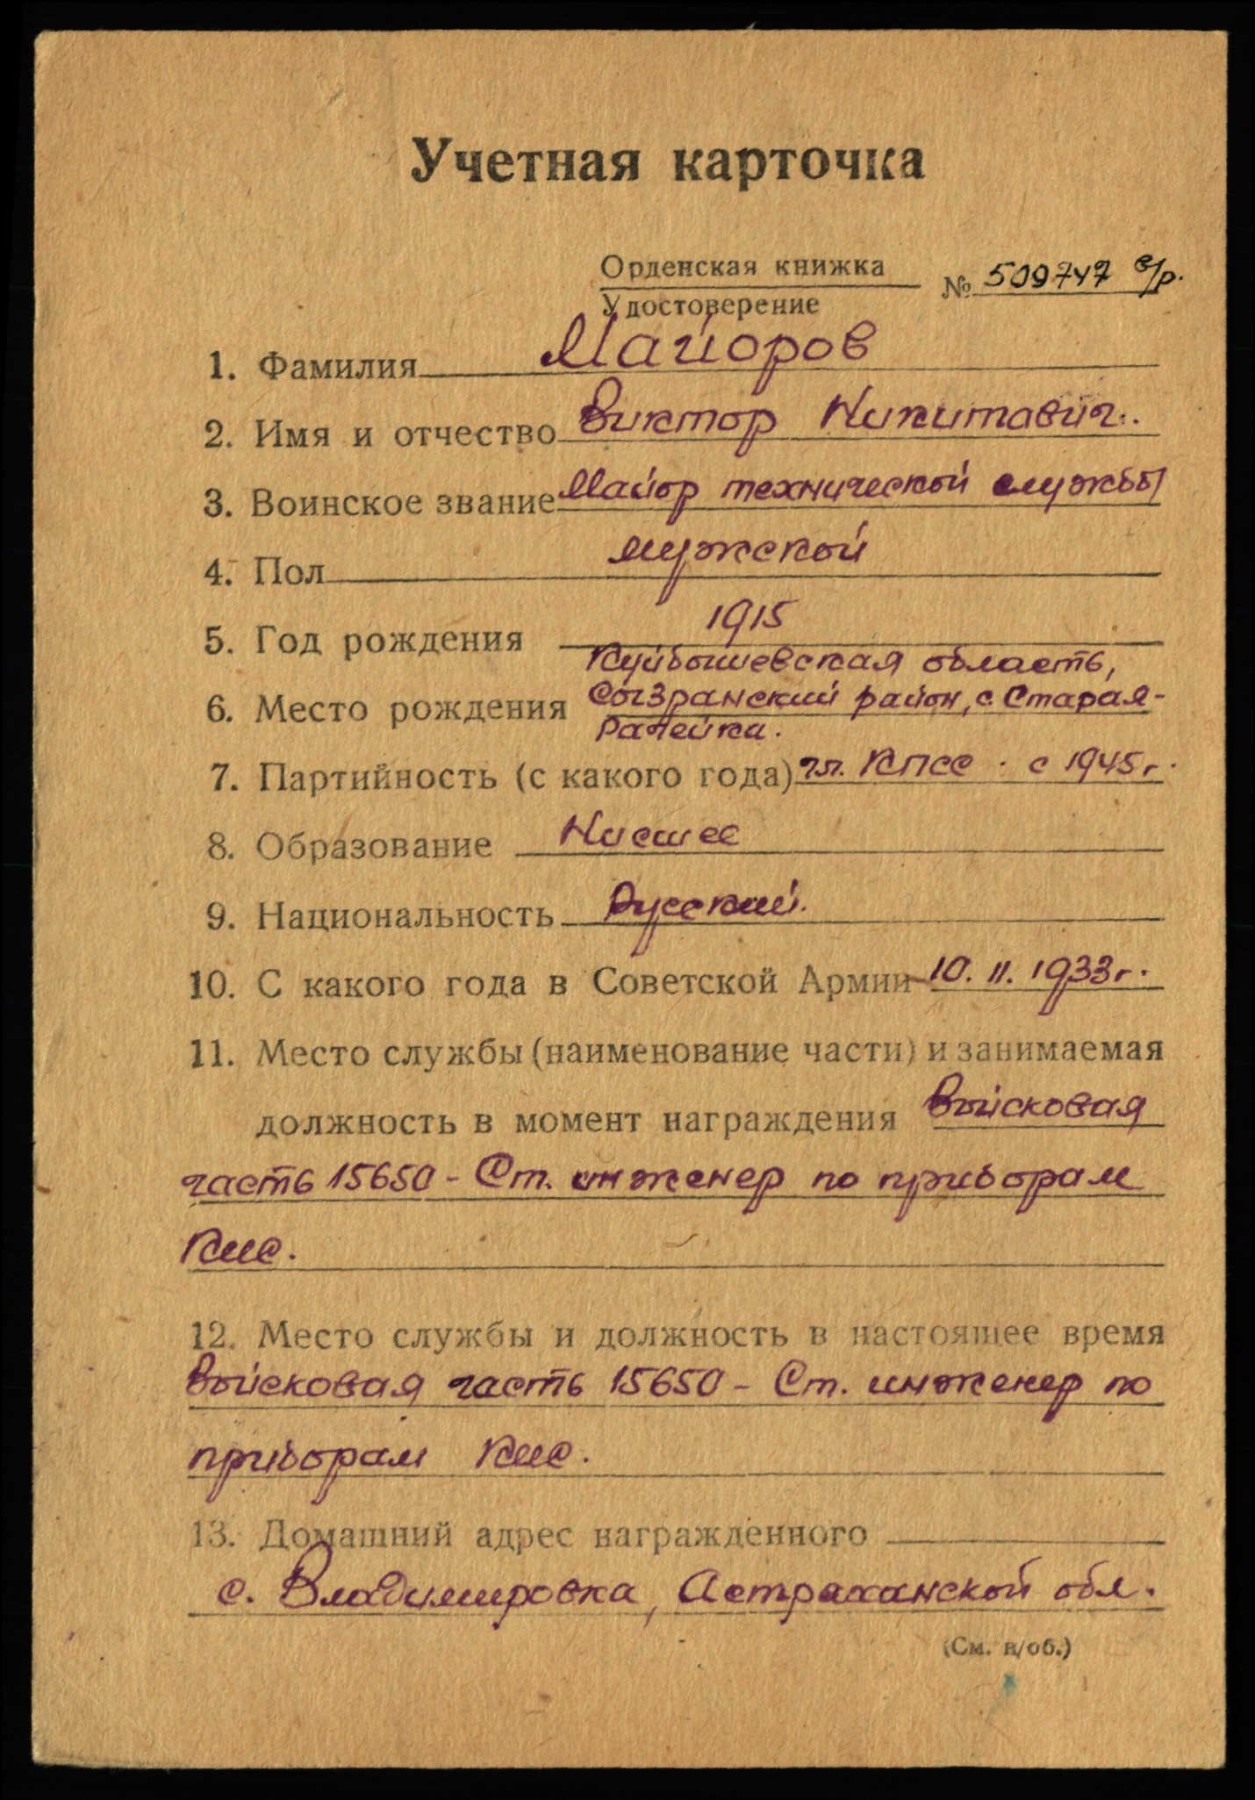 Учетная карточка
Орденская книжка
Удостоверение
№ 509747 б/р.
1. Фамилия Майоров
2. Имя и отчество Виктор Никитавич.
3. Воинское звание Майор технической службы
4. Пол мужской
5. Год рождения 1915
Куйбышевская область,
6. Место рождения Сызранский район, с. Старая-
Рачейка.
7. Партийность (с какого года) чл. КПСС. с 1945г.
8. Образование Нисшее
9. Национальность Русский.
10. С какого года в Советской Армии 10. 11. 1933г.
11. Место службы (наименование части) и занимаемая
должность в момент награждения Войсковая
часть 15650 - Ст. инженер по приборам
КИС.
12. Место службы и должность в настоящее время
Войсковая часть 15650 - Ст. инженер по
приборам КИС.
13. Домашний адрес награжденного
с. Владимировка, Астраханской обл.
(См. н/об.)